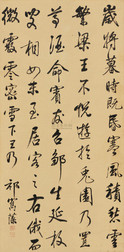 歲將暮時既昏寒風積愁雲
繁梁王不悅遊於兔園乃置
旨酒命賓友召鄒生延枚
叟相如末至居客之右俄而
微霰零密雪下王乃 祁寯藻